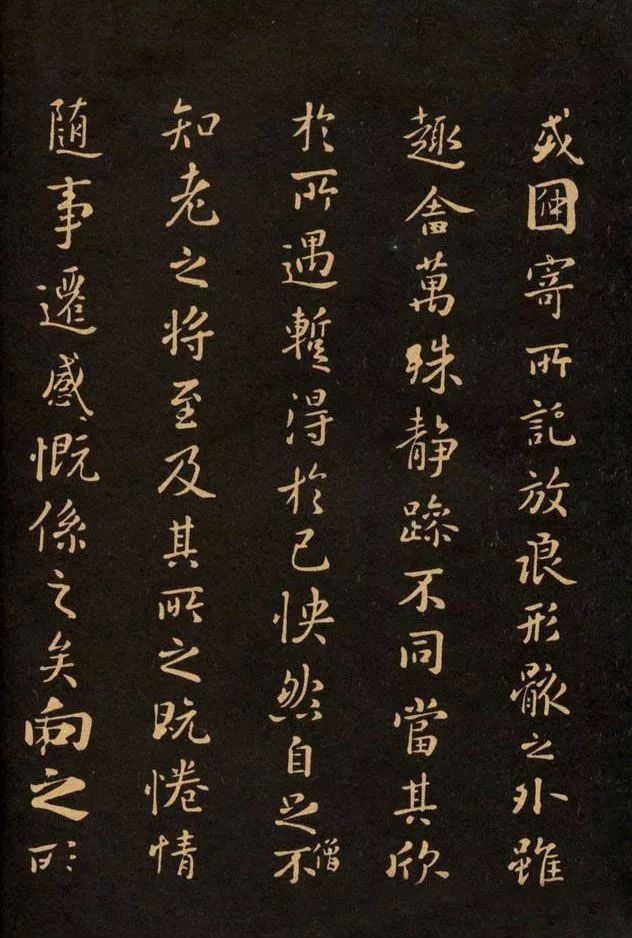 或因寄所託放浪形骸之外雖
趣舍萬殊静躁不同當其欣
於所遇蹔得於己怏然自足不
僧
知老之将至及其所之既惓情
随事遷感慨係之矣向之所